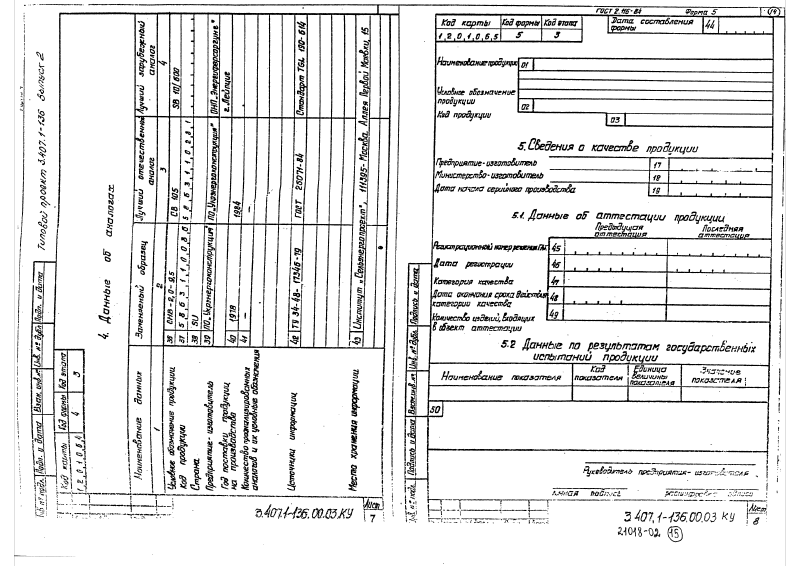 Типовой проект 3.407.1-136 Выпуск 2
Код карты Код формы Код этапа
1,2,0,1,0,6,4 4 3
4. Данные об аналогах
Наименование данных Заменяемый образец Лучший отечественный аналог Лучший зарубежный аналог
1 2 3 4
Условное обозначение продукции 36 СВ 105 SB 10/600
Код продукции 37
Страна 38 SU
Предприятие-изготовитель 39 ПО "Укрэнергоконструкция" ПО "Укрэнергоконструкция" г. Лейпциг
Год постановки продукции на производства 40 1978 1984
Количество проанализированных аналогов и их условные обозначения 41
Источники информации 42 ТУ 34-48- ГОСТ 26071-84 Стандарт TGL 190-614
Место хранения информации 43 Институт "Сельэнергопроект", 111395-Москва. Аллея Первой Маевки, 15
Инв.№ подл. Подп. и дата Взам. инв.№ Инв.№ дубл. Подп. и дата
3.407.1-136.00.03 КУ
Лист
7
ГОСТ 2.116-84 Форма 5
Код карты Код формы Код этапа Дата составления формы 44
1,2,0,1,0,6,5 5 3
Наименование продукции 01
Условное обозначение продукции 02
Код продукции 03
5. Сведения о качестве продукции
Предприятие-изготовитель 17
Министерство-изготовитель 18
Дата начала серийного производства 19
5.1. Данные об аттестации продукции
Предыдущая аттестация Последняя аттестация
Регистрационный номер решения 45
Дата регистрации 46
Категория качества 47
Дата окончания срока действия категории качества 48
Количество изделий, входящих в объект аттестации 49
5.2 Данные по результатам государственных испытаний продукции
Наименование показателя Код показателя Единица величины показателя Значение показателя
50
Руководитель предприятия-изготовителя
личная подпись расшифровка подписи
Инв.№ подл. Подпись и дата Взам.инв.№ Инв.№ дубл. Подпись и дата
3.407.1-136.00.03 КУ
Лист
8
21018-02 15